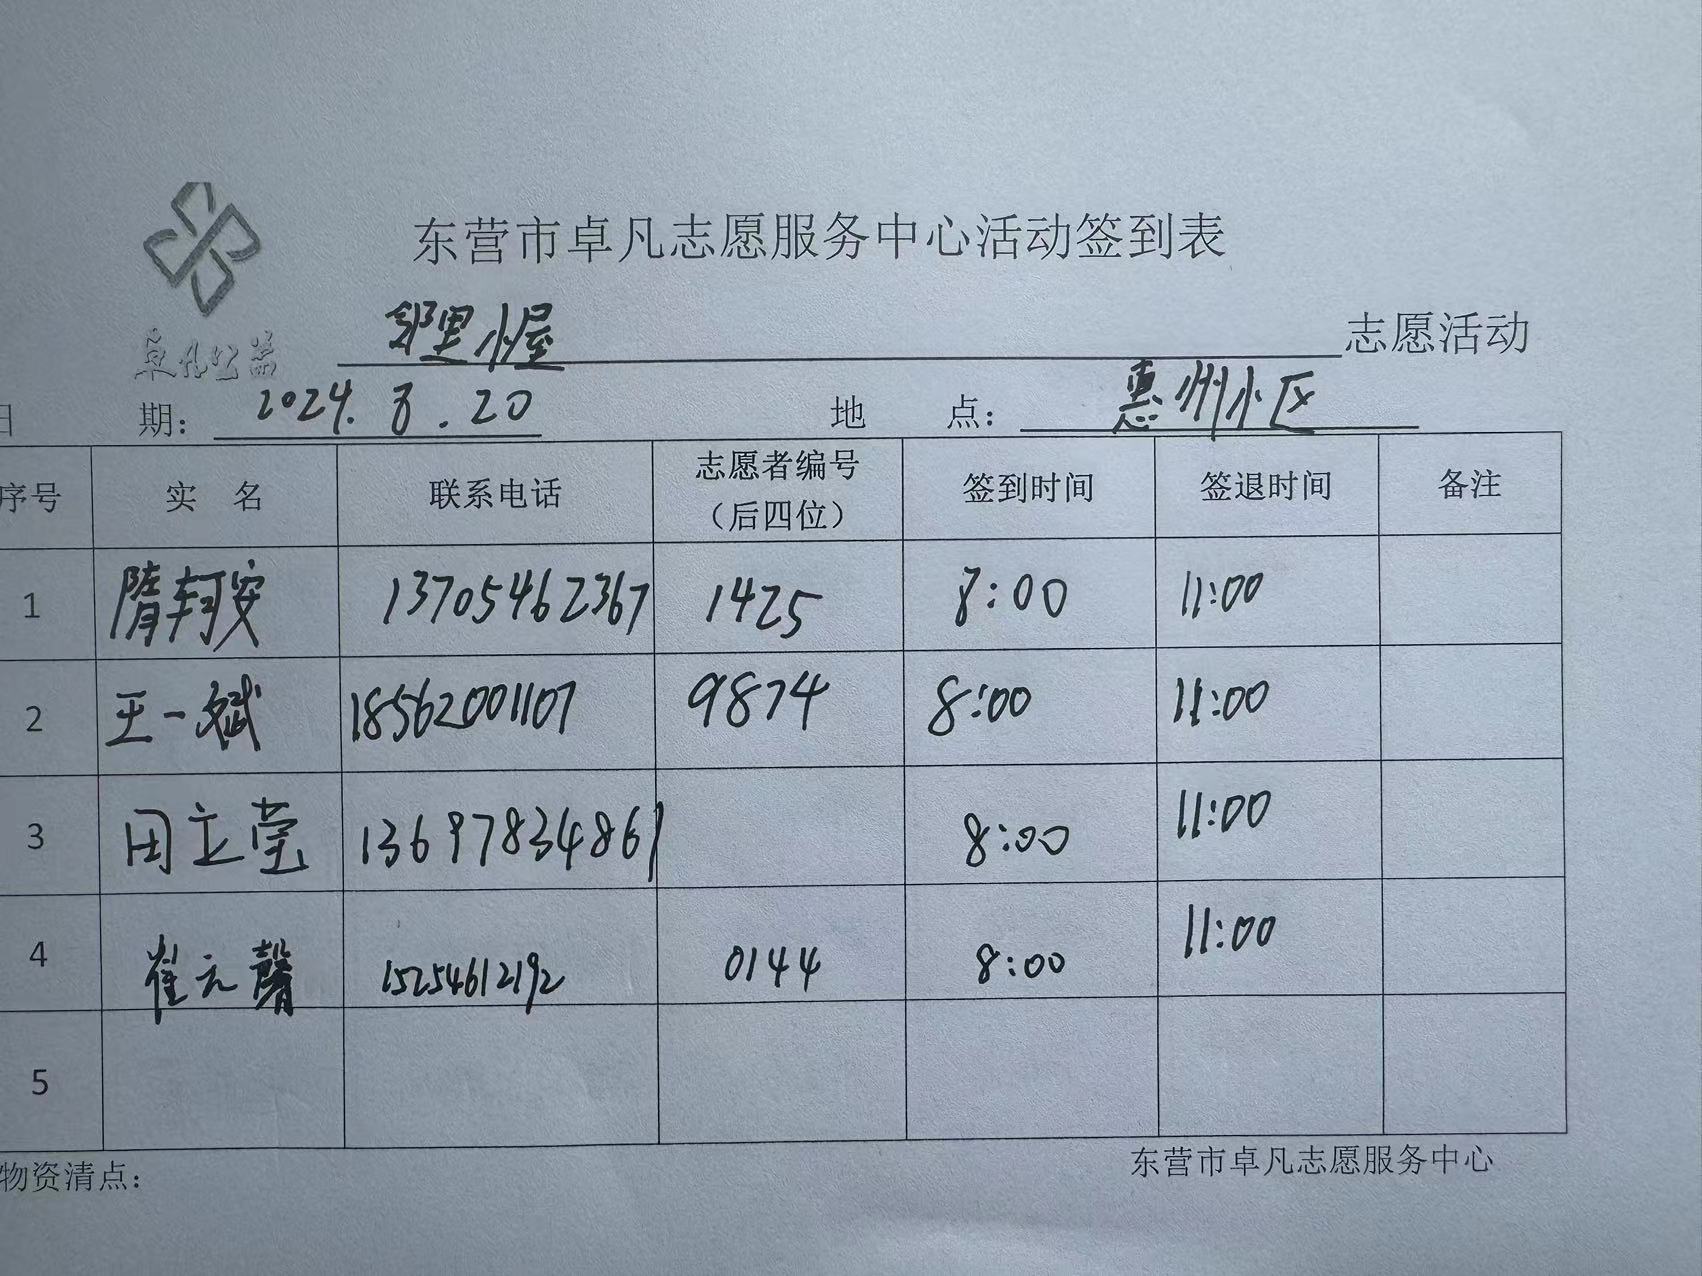 东营市卓凡志愿服务中心活动签到表
卓凡公益
邻里小屋 志愿活动
日 期：2024.8.20 地 点：惠州小区
序号 实 名 联系电话 志愿者编号（后四位） 签到时间 签退时间 备注
1 隋翔安 13705462367 1425 8:00 11:00
2 王一斌 18562001107 9874 8:00 11:00
3 田立莹 13697834861 8:00 11:00
4 崔元馨 15254612192 0144 8:00 11:00
5
东营市卓凡志愿服务中心
物资清点：